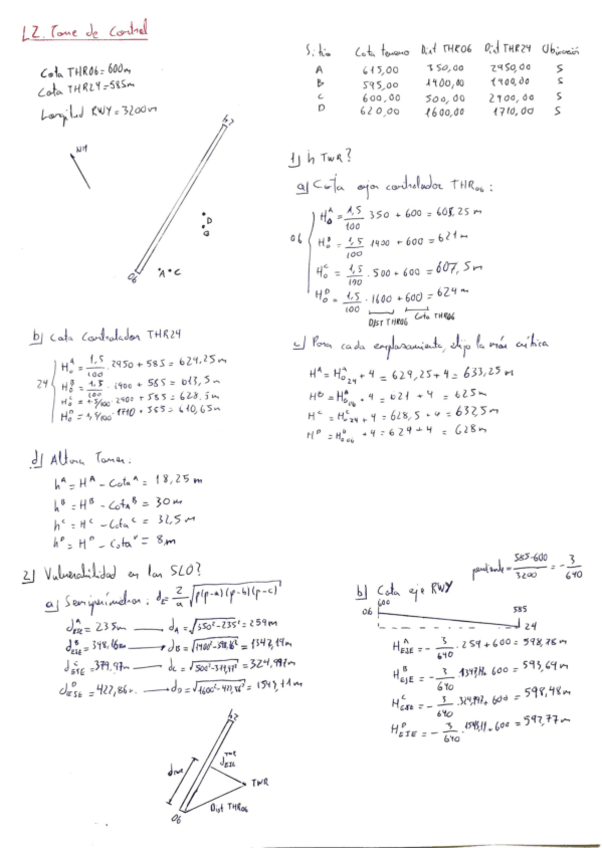 L2. Torre de Control
Cota THR06 = 600m
Cota THR24 = 585m
Longitud RWY = 3200m
Sitio Cota terreno Dist THR06 Dist THR24 Ubicación
A 615,00 350,00 2950,00 S
B 595,00 1400,00 1900,00 S
C 600,00 500,00 2900,00 S
D 620,00 1600,00 1710,00 S
NM
D
B
A C
06
1) h TWR?
a) Cota ojos controlador THR06:
06
H₀ᴬ = 1,5/100 · 350 + 600 = 605,25 m
H₀ᴮ = 1,5/100 · 1400 + 600 = 621 m
H₀ᶜ = 1,5/100 · 500 + 600 = 607,5 m
H₀ᴰ = 1,5/100 · 1600 + 600 = 624 m
DIST THR06 Cota THR06
b) Cota Controlador THR24
24
H₀ᴬ = 1,5/100 · 2950 + 585 = 629,25 m
H₀ᴮ = 1,5/100 · 1900 + 585 = 613,5 m
H₀ᶜ = 1,5/100 · 2900 + 585 = 628,5 m
H₀ᴰ = 1,5/100 · 1710 + 585 = 610,65 m
c) Para cada emplazamiento, elijo la más crítica
Hᴬ = Hᴬ₀24 + 4 = 629,25 + 4 = 633,25 m
Hᴮ = Hᴮ₀06 + 4 = 621 + 4 = 625 m
Hᶜ = Hᶜ₀24 + 4 = 628,5 + 4 = 632,5 m
Hᴰ = Hᴰ₀06 + 4 = 624 + 4 = 628 m
d) Altura Torres:
hᴬ = Hᴬ - Cotaᴬ = 18,25 m
hᴮ = Hᴮ - Cotaᴮ = 30 m
hᶜ = Hᶜ - Cotaᶜ = 32,5 m
hᴰ = Hᴰ - Cotaᴰ = 8 m
2) Vulnerabilidad en las SLO?
a) Semiperímetro: dE = 2/a √p(p-a)(p-b)(p-c)
dᴬEJE = 235m → dA = √350²-235² = 259m
dᴮEJE = 398,16m → dB = √1400²-398,16² = 1342,19m
dᶜEJE = 379,97m → dC = √500²-379,97² = 324,997m
dᴰEJE = 422,86m → dD = √1600²-422,86² = 1543,11m
pendiente = 585-600/3200 = -3/640
b) Cota eje RWY
600
06
585
24
Hᴬ EJE = -3/640 · 259 + 600 = 598,78m
Hᴮ EJE = -3/640 · 1342,19 + 600 = 593,69m
Hᶜ EJE = -3/640 · 324,997 + 600 = 598,48m
Hᴰ EJE = -3/640 · 1543,11 + 600 = 592,77m
dTWR
dTWR EJE
TWR
Dist THR06
06